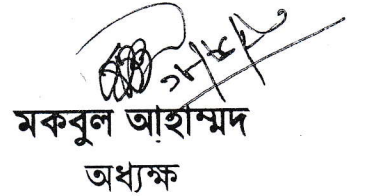 মকবুল আহাম্মদ
অধ্যক্ষ